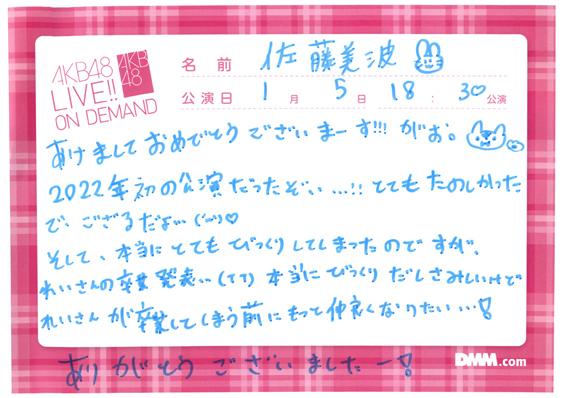 AKB48
LIVE!!
ON DEMAND
AKB
48
名前 佐藤美波
公演日 1月5日 18:30公演
あけましておめでとうございまーす!!! がお。
2022年初の公演だったぞい…!! とてもたのしかった
で、ござるだよ
そして、本当にとてもびっくりしてしまったのですが、
れいさんの卒業発表、、(TT) 本当にびっくりだしさみしいけど
れいさんが卒業してしまう前にもっと仲良くなりたい…!
ありがとうございましたー!
DMM.com